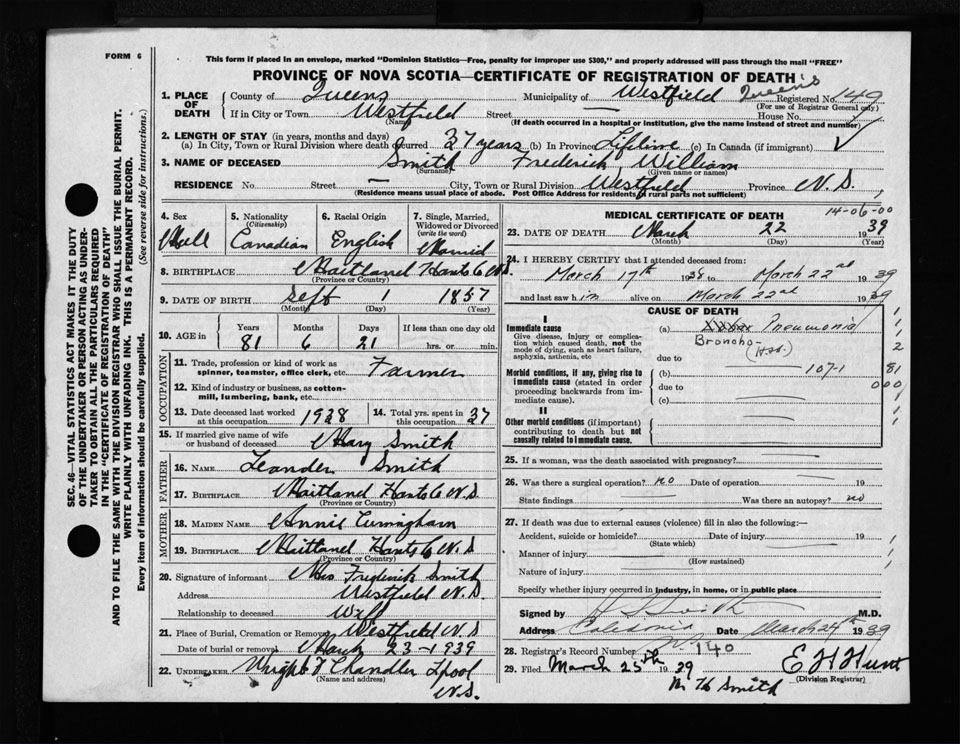 FORM 6
This form if placed in an envelope, marked "Dominion Statistics—Free, penalty for improper use $300," and properly addressed will pass through the mail "FREE"
PROVINCE OF NOVA SCOTIA—CERTIFICATE OF REGISTRATION OF DEATH
SEC. 46—VITAL STATISTICS ACT MAKES IT THE DUTY
OF THE UNDERTAKER OR PERSON ACTING AS UNDER-
TAKER TO OBTAIN ALL THE PARTICULARS REQUIRED
IN THE "CERTIFICATE OF REGISTRATION OF DEATH"
AND TO FILE THE SAME WITH THE DIVISION REGISTRAR WHO SHALL ISSUE THE BURIAL PERMIT.
WRITE PLAINLY WITH UNFADING INK. THIS IS A PERMANENT RECORD.
Every item of information should be carefully supplied. (See reverse side for instructions.)
1. PLACE OF DEATH County of Queens Municipality of Westfield Queen's Registered No. 149
(For use of Registrar General only)
If in City or Town Westfield Street — House No.
(Name) (If death occurred in a hospital or institution, give the name instead of street and number)
2. LENGTH OF STAY (in years, months and days)
(a) In City, Town or Rural Division where death occurred 37 years (b) In Province Lifetime (c) In Canada (if immigrant)
3. NAME OF DECEASED Smith Frederick William
(Surname) (Given name or names)
RESIDENCE No. Street — City, Town or Rural Division Westfield Province N.S.
(Residence means usual place of abode. Post Office Address for residents of rural parts not sufficient)
4. Sex Male
5. Nationality (Citizenship) Canadian
6. Racial Origin English
7. Single, Married, Widowed or Divorced (write the word) Married
8. BIRTHPLACE Maitland Hants Co N.S.
(Province or Country)
9. DATE OF BIRTH Sept 1 1857
(Month) (Day) (Year)
10. AGE in Years 81 Months 6 Days 21 If less than one day hrs. or min.
OCCUPATION
11. Trade, profession or kind of work as spinner, teamster, office clerk, etc. Farmer
12. Kind of industry or business, as cotton-mill, lumbering, bank, etc.
13. Date deceased last worked at this occupation 1938
14. Total yrs. spent in this occupation 37
15. If married give name of wife or husband of deceased Mary Smith
FATHER
16. NAME Leander Smith
17. BIRTHPLACE Maitland Hants Co N.S.
(Province or Country)
MOTHER
18. MAIDEN NAME Annie Cunningham
19. BIRTHPLACE Maitland Hants Co N.S
(Province or Country)
20. Signature of informant Mrs Frederick Smith
Address Westfield N.S.
Relationship to deceased Wife
21. Place of Burial, Cremation or Removal Westfield N.S
Date of burial or removal March 23-1939
22. UNDERTAKER Wright & Chandler Lpool
(Name and address) N.S.
MEDICAL CERTIFICATE OF DEATH
14-06-00
23. DATE OF DEATH March 22 1939
(Month) (Day) (Year)
24. I HEREBY CERTIFY that I attended deceased from:
March 17th 1938 to March 22nd 1939
and last saw him alive on March 22nd 1939
CAUSE OF DEATH
I
Immediate cause
Give disease, injury or complication which caused death, not the mode of dying, such as heart failure, asphyxia, asthenia, etc
(a) Pneumonia
Broncho-
due to
Morbid conditions, if any, giving rise to immediate cause (stated in order proceeding backwards from immediate cause).
(b) 107-1
due to
(c)
II
Other morbid conditions (if important) contributing to death but not causally related to immediate cause.
1
1
2
81
000
25. If a woman, was the death associated with pregnancy? —
26. Was there a surgical operation? no Date of operation — 19
State findings — Was there an autopsy? no
27. If death was due to external causes (violence) fill in also the following:—
Accident, suicide or homicide? Date of injury 19
(State which)
Manner of injury
(How sustained)
Nature of injury
Specify whether injury occurred in industry, in home, or in public place
Signed by M.D.
Address Caledonia Date March 24th 1939
28. Registrar's Record Number 140
29. Filed March 25th 1939 E H Hunt
(Division Registrar)
M H Smith